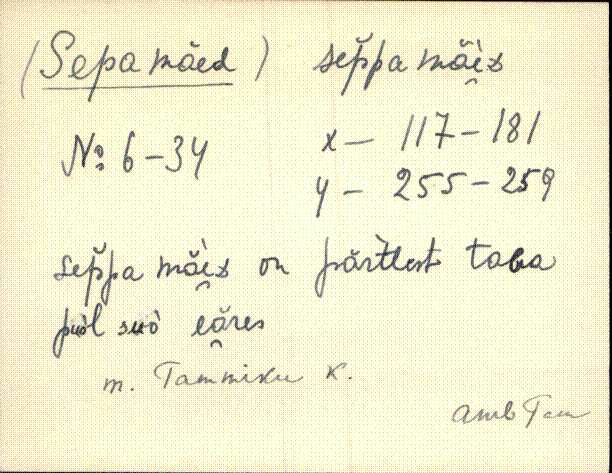 (Sepamäed) seppa mäiz
№ 6-34 x - 117-181
y - 255-259
seppa mäiz on pärtlest taba
puol suo eäres
m. Tammiku k.
Amb Tam